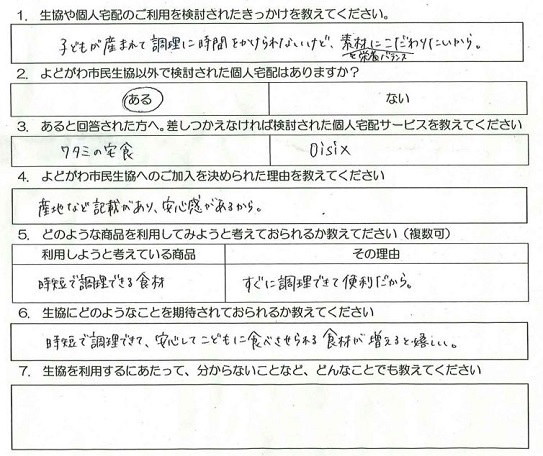 1. 生協や個人宅配のご利用を検討されたきっかけを教えてください。
子どもが産まれて調理に時間をかけられないけど、素材にこだわりたいから。
や栄養バランス
2. よどがわ市民生協以外で検討された個人宅配はありますか？
ある ない
3. あると回答された方へ。差しつかえなければ検討された個人宅配サービスを教えてください
ワタミの宅食 Oisix
4. よどがわ市民生協へのご加入を決められた理由を教えてください
産地など記載があり、安心感があるから。
5. どのような商品を利用してみようと考えておられるか教えてださい（複数可）
利用しようと考えている商品 その理由
時短で調理できる食材 すぐに調理できて便利だから。
6. 生協にどのようなことを期待されておられるか教えてください
時短で調理できて、安心してこどもに食べさせられる食材が増えると嬉しい。
7. 生協を利用するにあたって、分からないことなど、どんなことでも教えてください